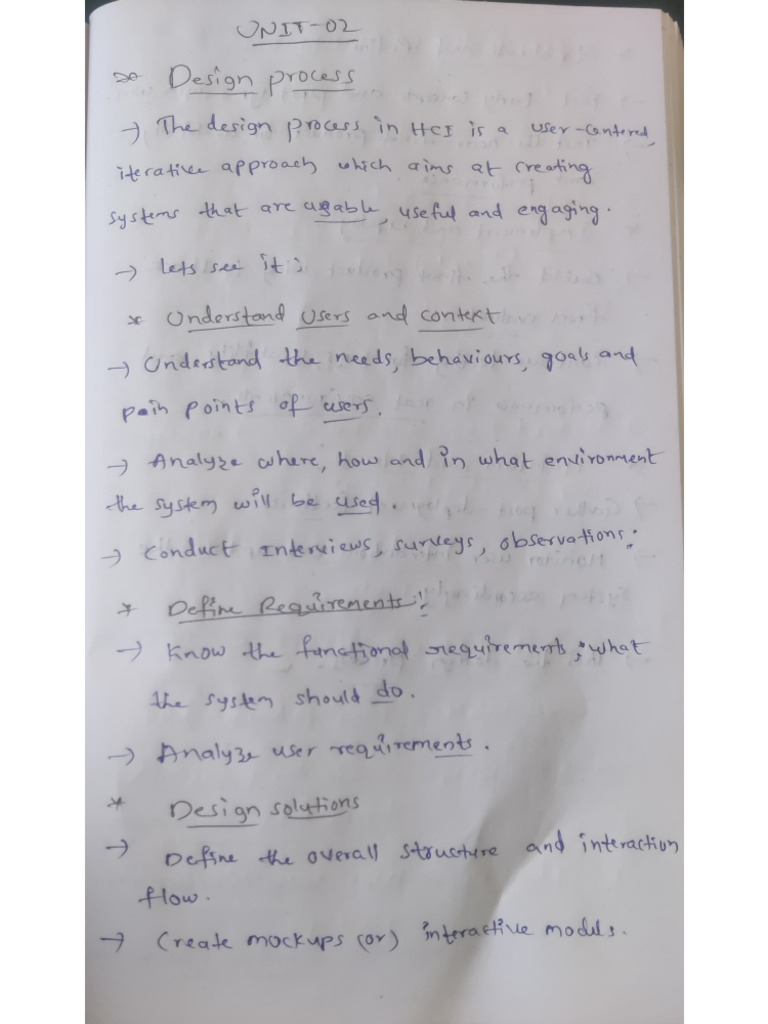 UNIT-02
Design process
→ The design process in HCI is a user-centered,
iterative approach which aims at creating
systems that are usable, useful and engaging.
→ lets see it :
* Understand Users and context
→ Understand the needs, behaviours, goals and
pain points of users.
→ Analyze where, how and in what environment
the system will be used.
→ Conduct Interviews, surveys, observations.
* Define Requirements:
→ Know the functional requirements; what
the system should do.
→ Analyze user requirements.
* Design solutions
→ Define the overall structure and interaction
flow.
→ Create mockups (or) interactive models.